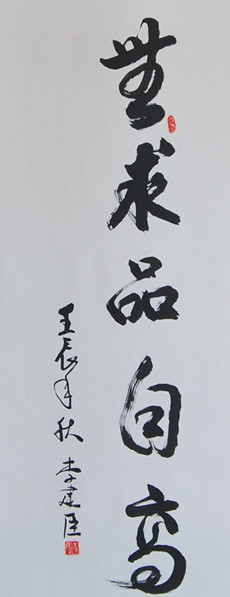 無求品自高
壬辰年秋 李建臣